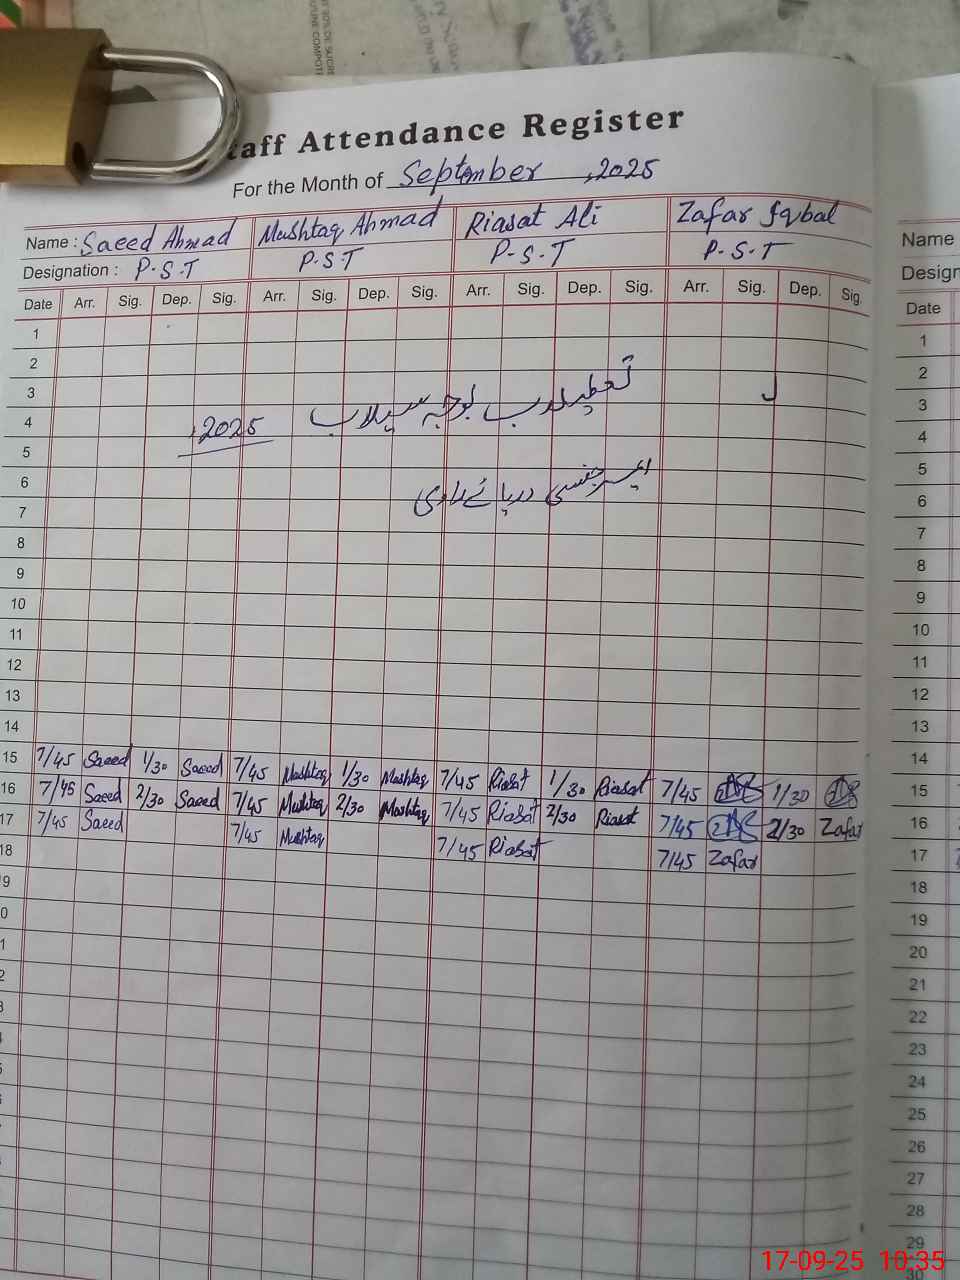 taff Attendance Register
For the Month of September, 2025
Name : Saeed Ahmad Mushtaq Ahmad Riasat Ali Zafar Iqbal
Designation : P.S.T P.S.T P.S.T P.S.T
Date Arr. Sig. Dep. Sig. Arr. Sig. Dep. Sig. Arr. Sig. Dep. Sig. Arr. Sig. Dep. Sig.
1
2
3
4
تعطیلات بوجہ سیلاب 2025,
5
6
ایمرجنسی دریائے راوی
7
8
9
10
11
12
13
14
15 7/45 Saeed 1/30 Saeed 7/45 Mushtaq 1/30 Mushtaq 7/45 Riasat 1/30 Riasat 7/45 1/30
16 7/45 Saeed 2/30 Saeed 7/45 Mushtaq 2/30 Mushtaq 7/45 Riasat 2/30 Riasat 7/45 2/30 Zafar
17 7/45 Saeed 7/45 Mushtaq 7/45 Riasat 7/45 Zafar
18
9
0
1
2
3
Name
Design
Date
1
2
3
4
5
6
7
8
9
10
11
12
13
14
15
16
17
18
19
20
21
22
23
24
25
26
27
28
29
30
17-09-25 10:35